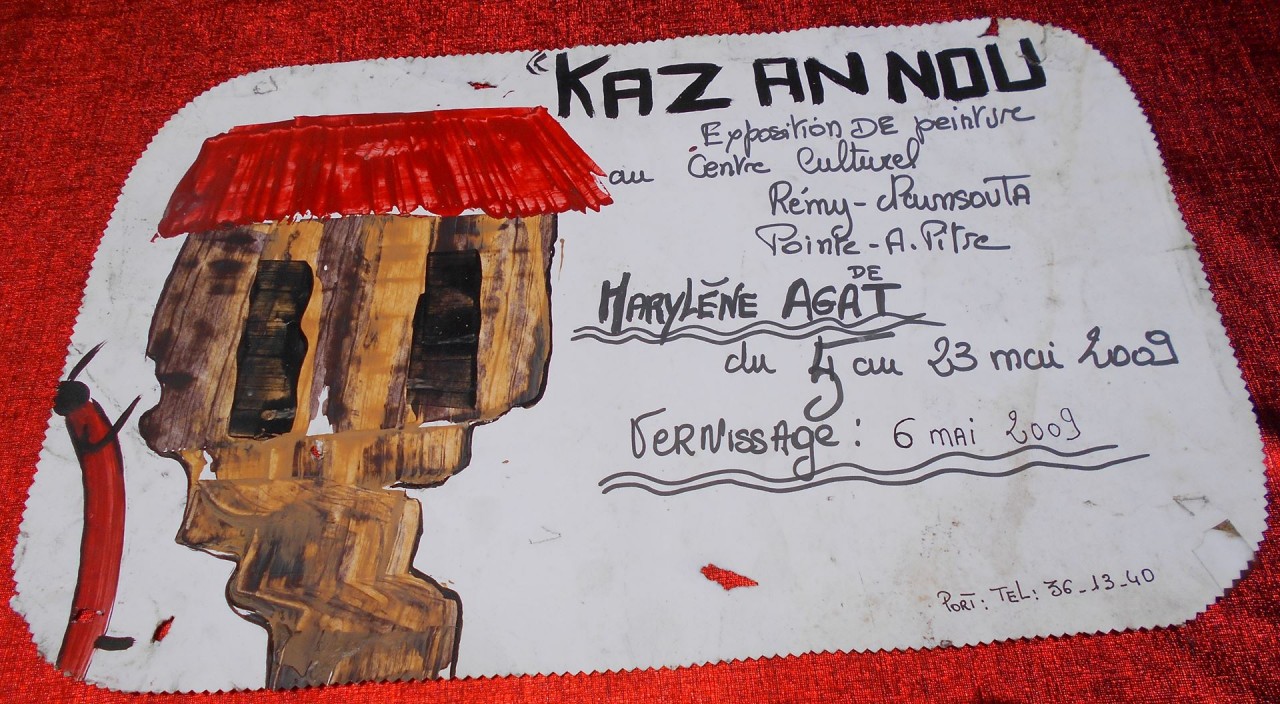 "KAZ AN NOU
Exposition DE peinture
au Centre Culturel
Rémy-Naunsouta
Pointe-A.Pitre
DE
MARYLÈNE AGAT
du 4 au 23 mai 2009
VERNISSAGE: 6 MAI 2009
PORT: TEL: 36_13_40